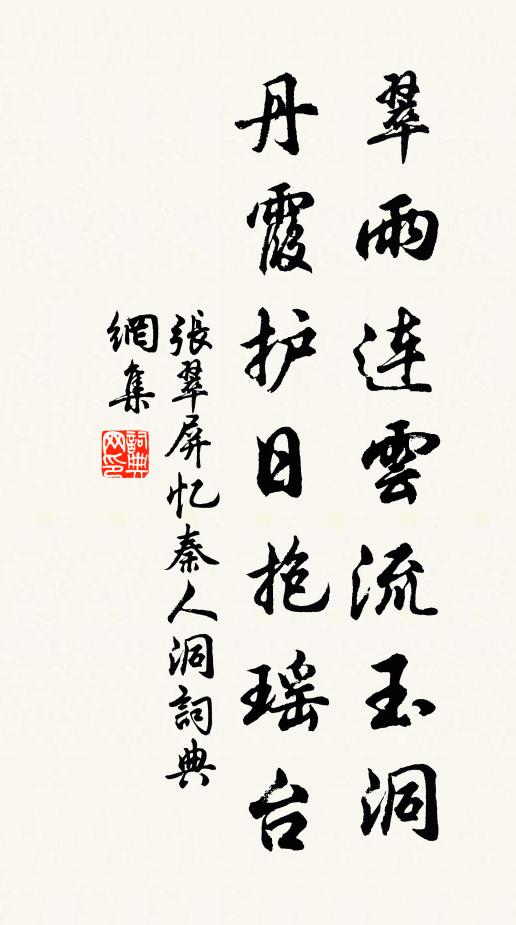 翠雨連雲流玉洞
丹霞护日抱瑶台
張翠屏忆秦人洞詞典
網集
詞典
网印